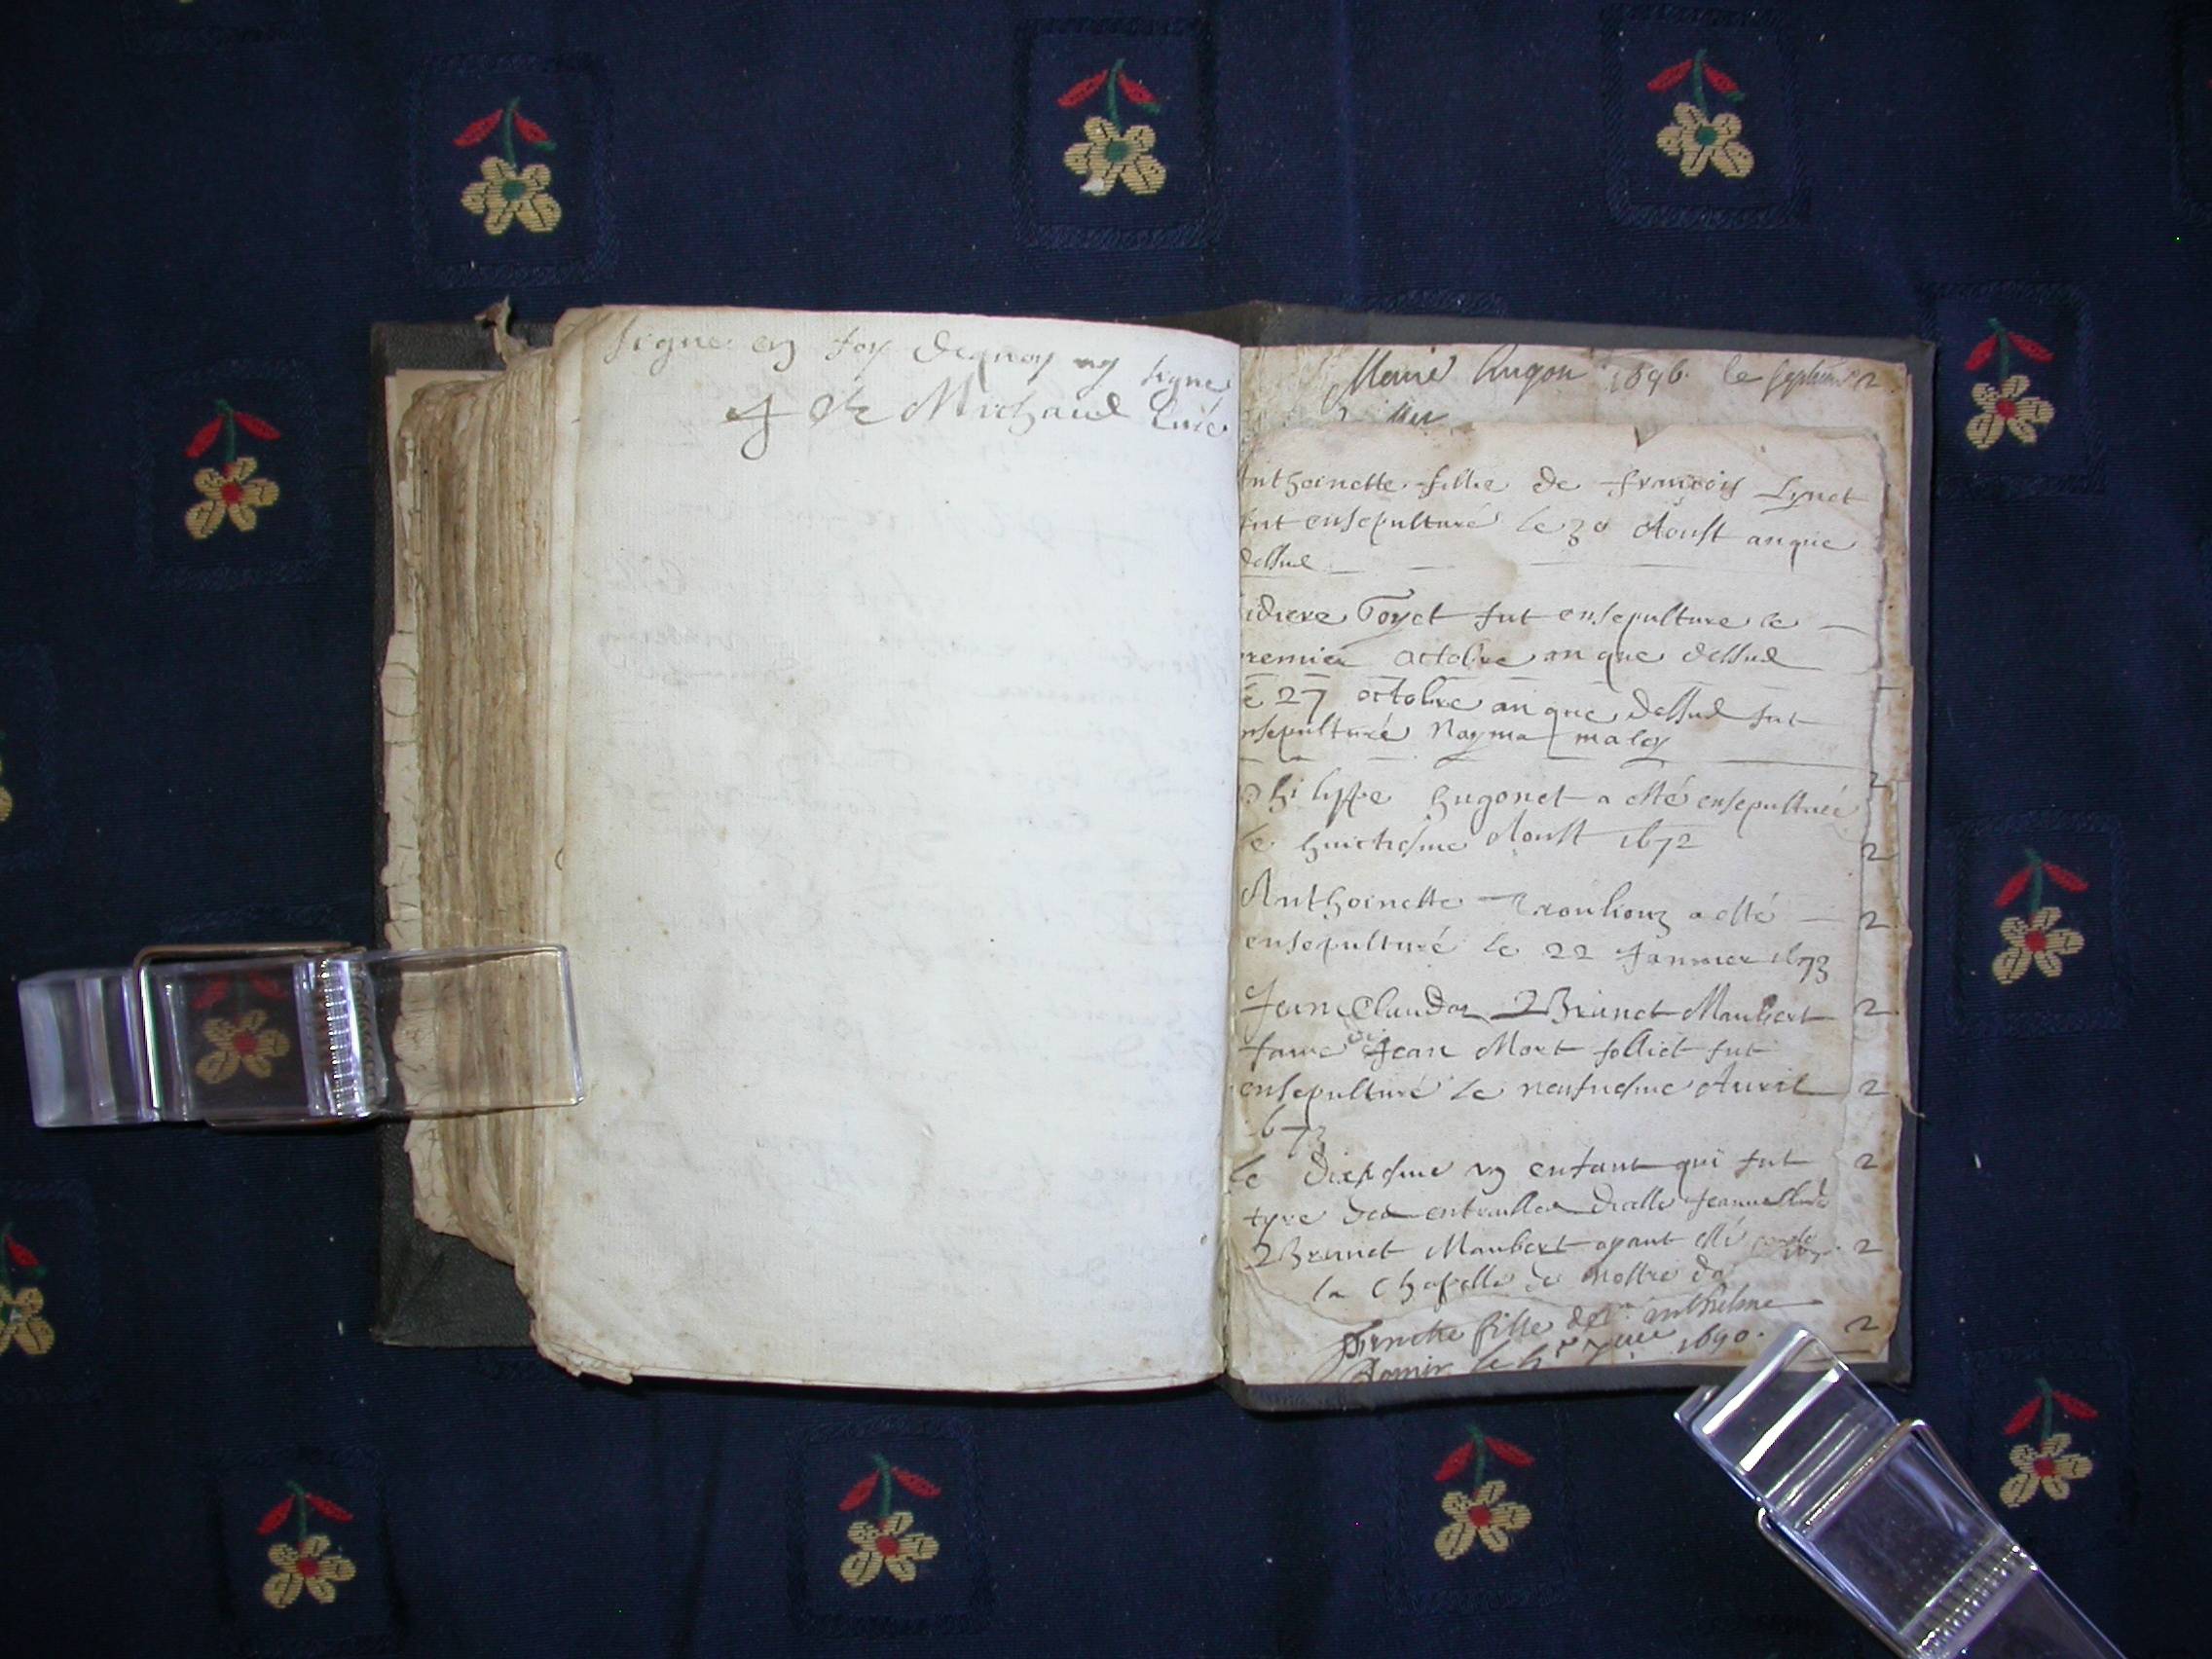 signe en foy dequoy ay signe
J Ch Michaud Curé
Marie hugon 1696 le septiem
Anthoinette fillie de françois Lynet
fut ensepulturé le 30 Aoust an que
dessus
idiere Foyet fut ensepulture le
premier octobre an que dessus
le 27 octobre an que dessus fut
ensepulturé Nayma maley
Philippe hugonet a esté ensepulturée
le huictiesme Aoust 1672
2
Anthoinette a esté 2
ensepulturé le 22 Januier 1673
Jeane Claudaz Brunet Maubert 2
fame de Jean Mort folliet fut
ensepulturé le neufuiesme Auril 2
1673
le dixiesme un enfant qui fut 2
tyre des entrailles dicelle Jeanne Claude
Brunet Maubert ayant esté 2
la Chapelle de nostre da
fille de anthelme
le 1690. 2